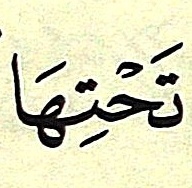 تَحْتِهَا